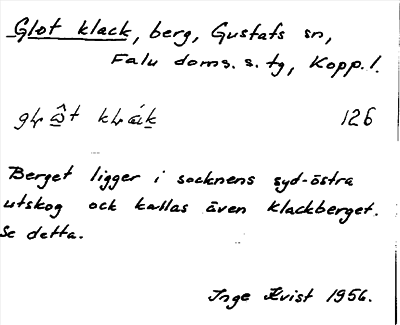 Glot klack, berg, Gustafs sn,
Falu doms. s. tg, Kopp. l.
126
Berget ligger i socknens syd-östra
utskog och kallas även Klackberget.
Se detta.
Inge Kvist 1956.